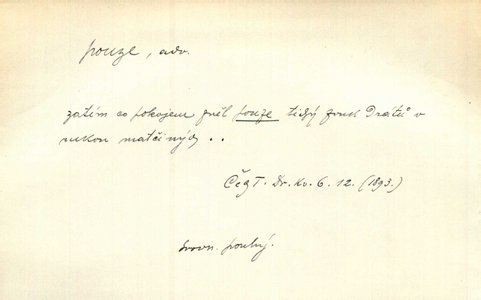 pouze, adv.
zatím co pokojem zněl pouze tichý zvuk drátů v
rukou matčiných ..
Čech. Dr. Kv. 6. 12. (1893.)
srovn. pouhý.